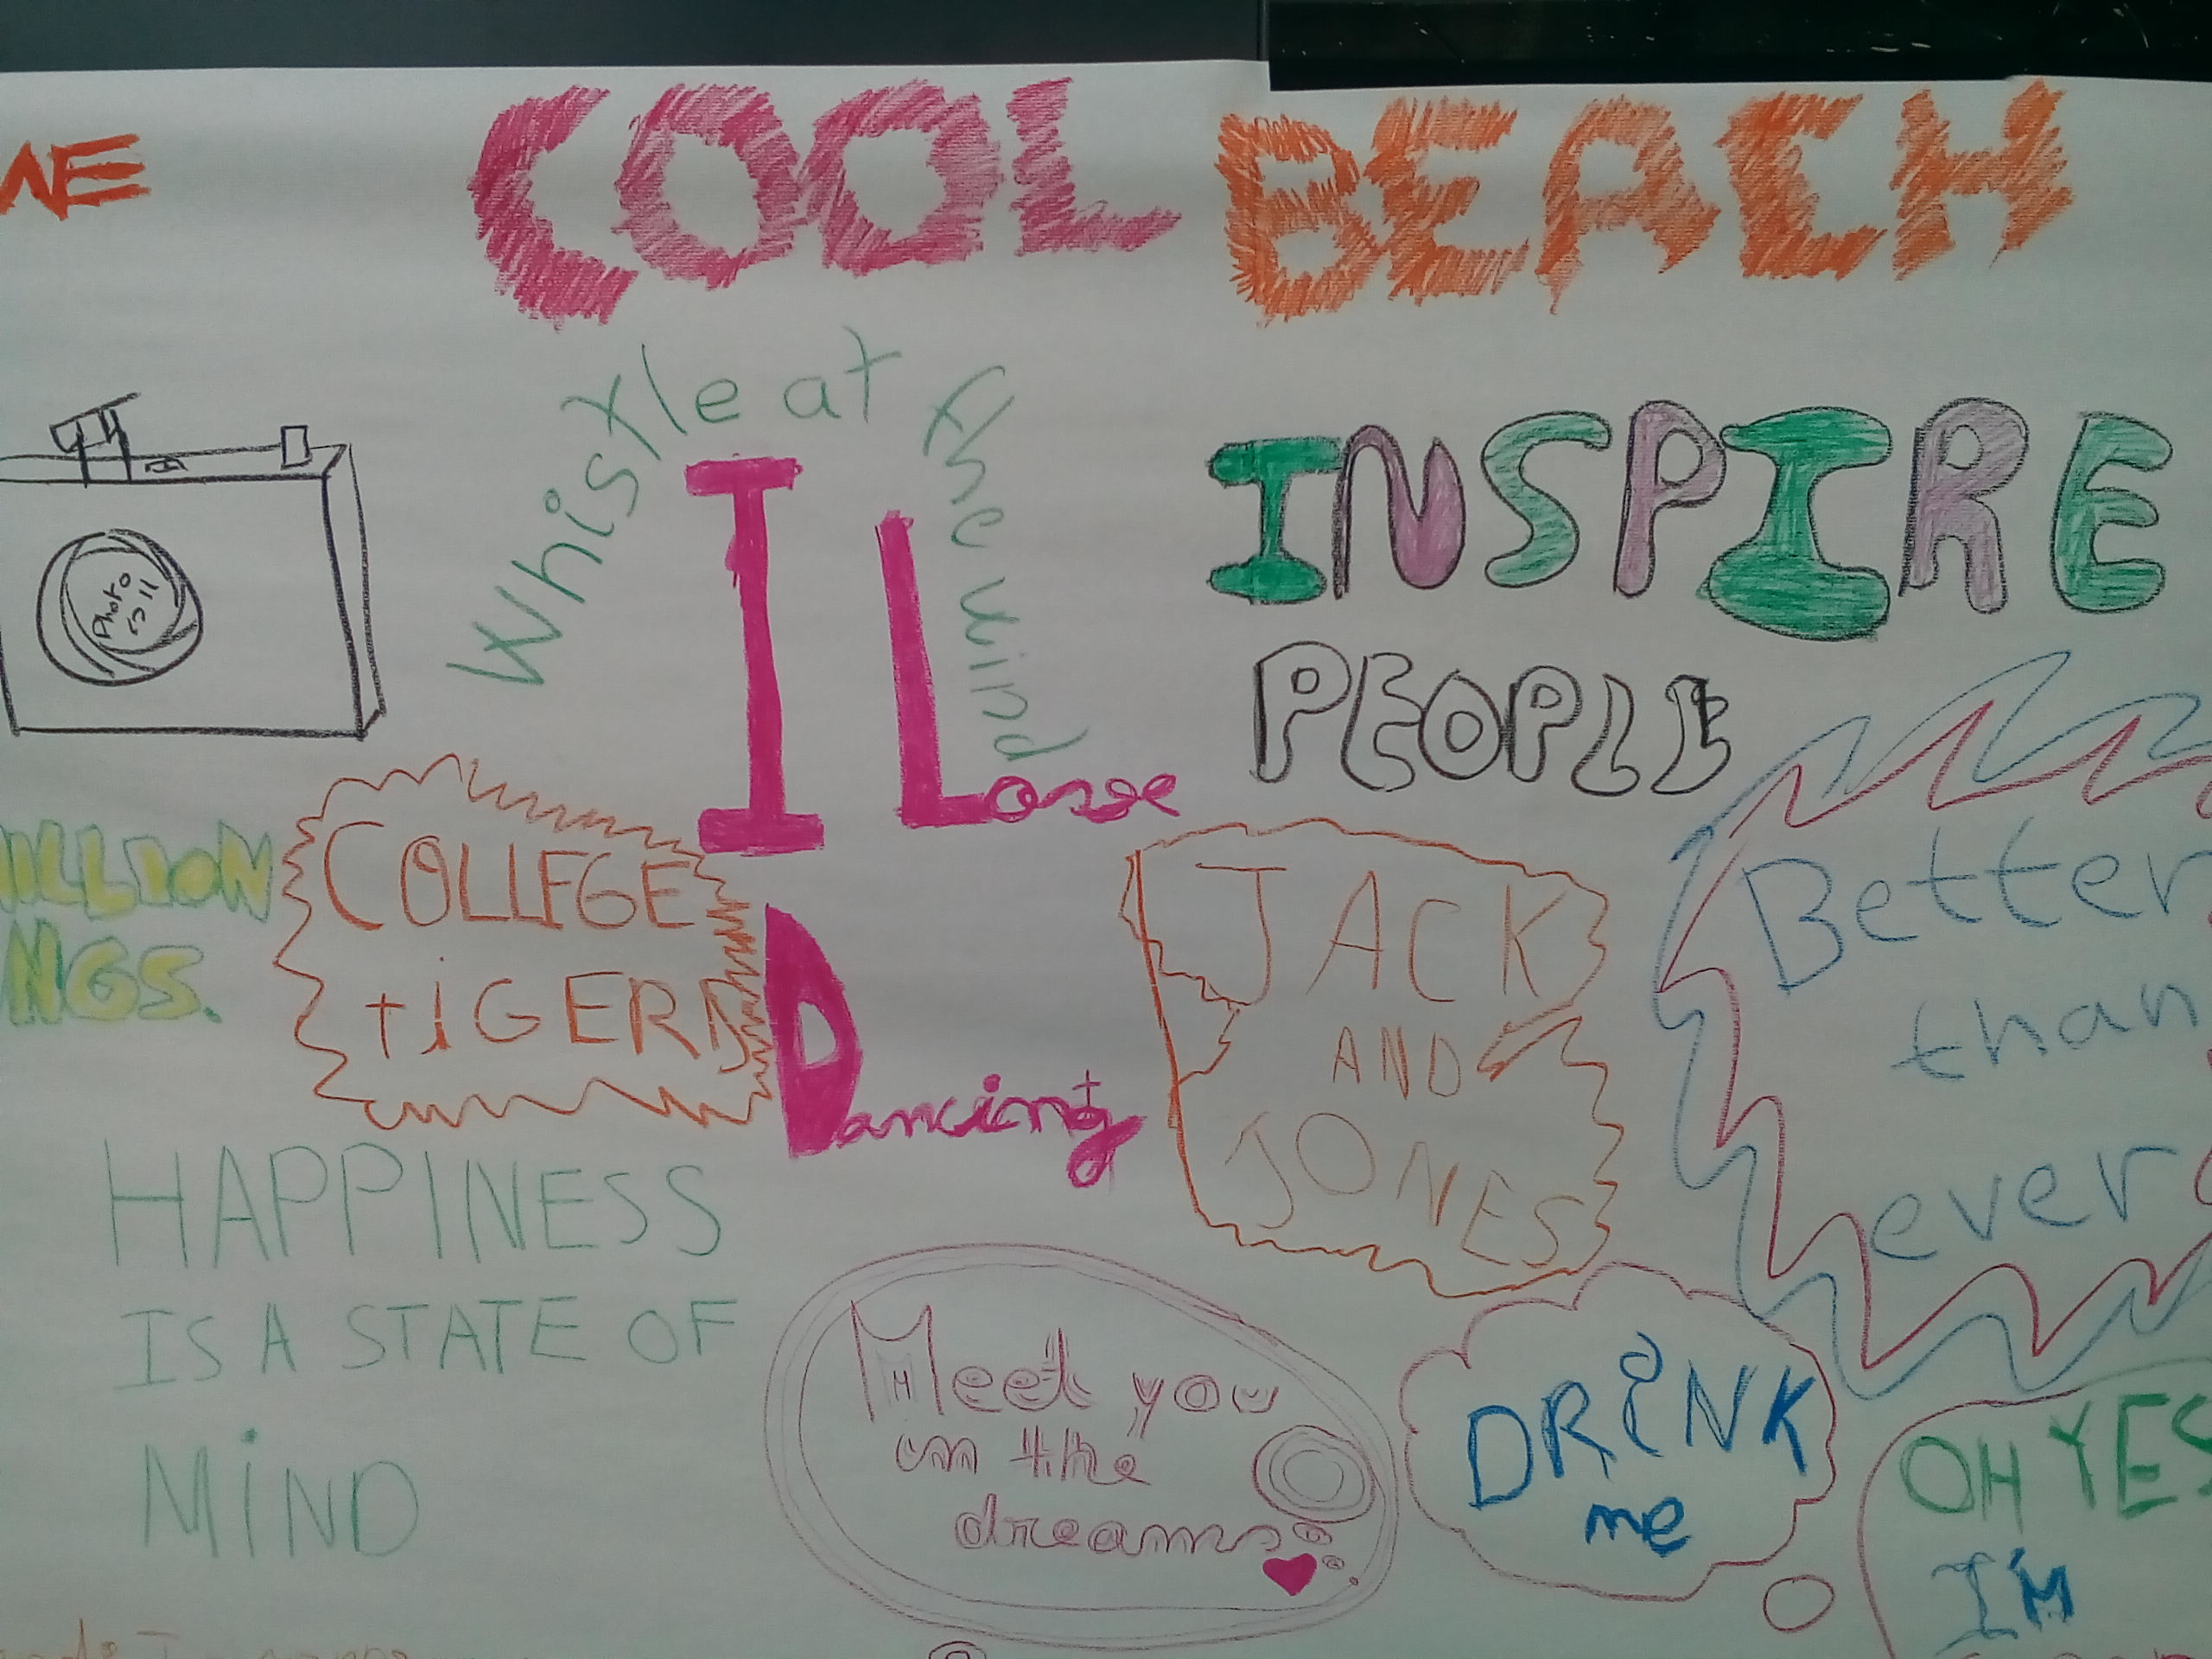 NE
COOL
BEACH
Whistle at the wind
I Love
Dancing
INSPIRE
PEOPLE
Photo
ILLION
NGS.
COLLEGE
tiGERS
JACK
AND
JONES
Better
than
ever
HAPPINESS
IS A STATE OF
MiND
Meet you
in the
dreams
DRiNK
me
OH YES
I'M